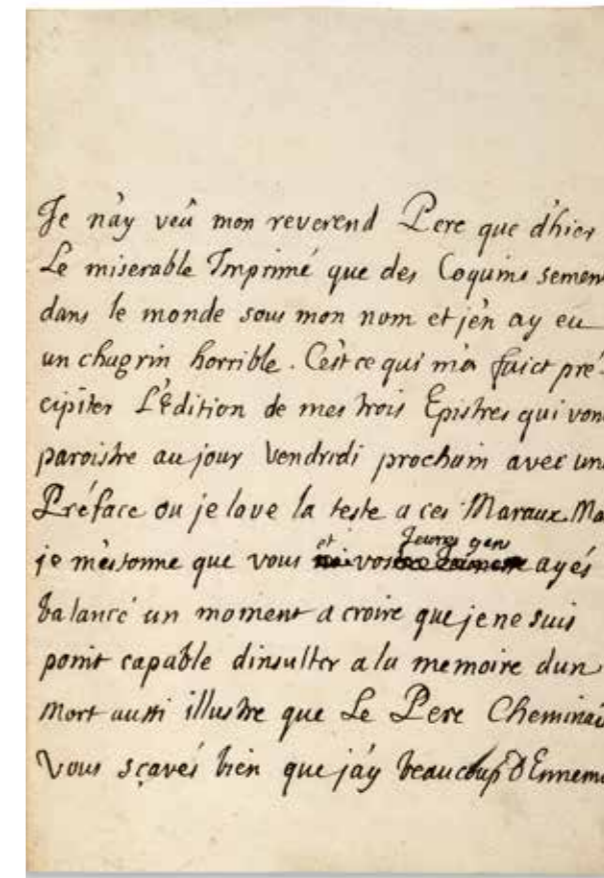 Je n'ay veû mon reverend Pere que d'hier
Le miserable Imprimé que des Coquins semen
dans le monde sous mon nom et j'en ay eu
un chagrin horrible. C'est ce qui m'a faict pré-
cipiter L'Edition de mes trois Epistres qui von
paroistre au jour Vendredi prochain avec un
Préface ou je lave la teste a ces Maraux. Ma
je m'estonne que vous et vos Jeunes gens ayés
balancé un moment a croire que je ne suis
point capable d'insulter a la memoire d'un
Mort aussi illustre que Le Pere Cheminai
Vous sçavés bien que j'ay beaucoup D'Ennemi